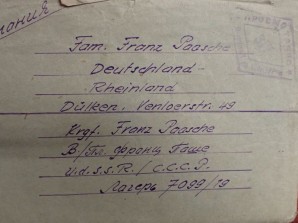 Fam. Franz Paasche
Deutschland
Rheinland
Dülken. Venloerstr. 49
Krgf. Franz Paasche
В./Пл. Франц Паше
U.d.S.S.R. / С.С.С.Р.
Лагерь 7099/19